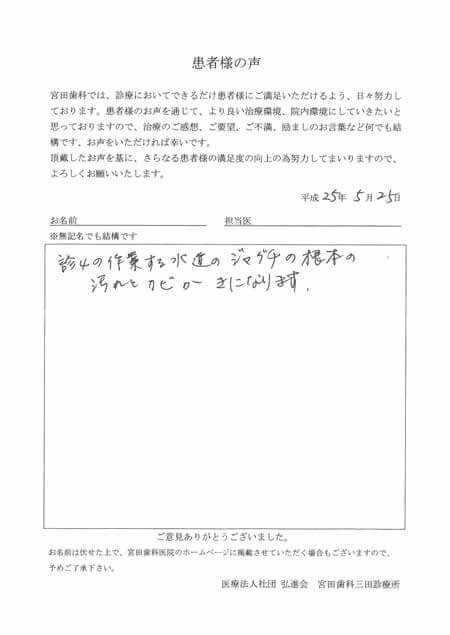 患者様の声
宮田歯科では、診療においてできるだけ患者様にご満足いただけるよう、日々努力し
ております。患者様のお声を通じて、より良い治療環境、院内環境にしていきたいと
思っておりますので、治療のご感想、ご要望、ご不満、励ましのお言葉など何でも結
構です、お声をいただければ幸いです。
頂戴したお声を基に、さらなる患者様の満足度の向上の為努力してまいりますので、
よろしくお願いいたします。
平成 25年 5月 25日
お名前 担当医
※無記名でも結構です
診4の作業する水道のジャグチの根本の
汚れとカビが きになります.
ご意見ありがとうございました。
お名前は伏せた上で、宮田歯科医院のホームページに掲載させていただく場合もございますので、
予めご了承下さい。
医療法人社団 弘進会 宮田歯科三田診療所